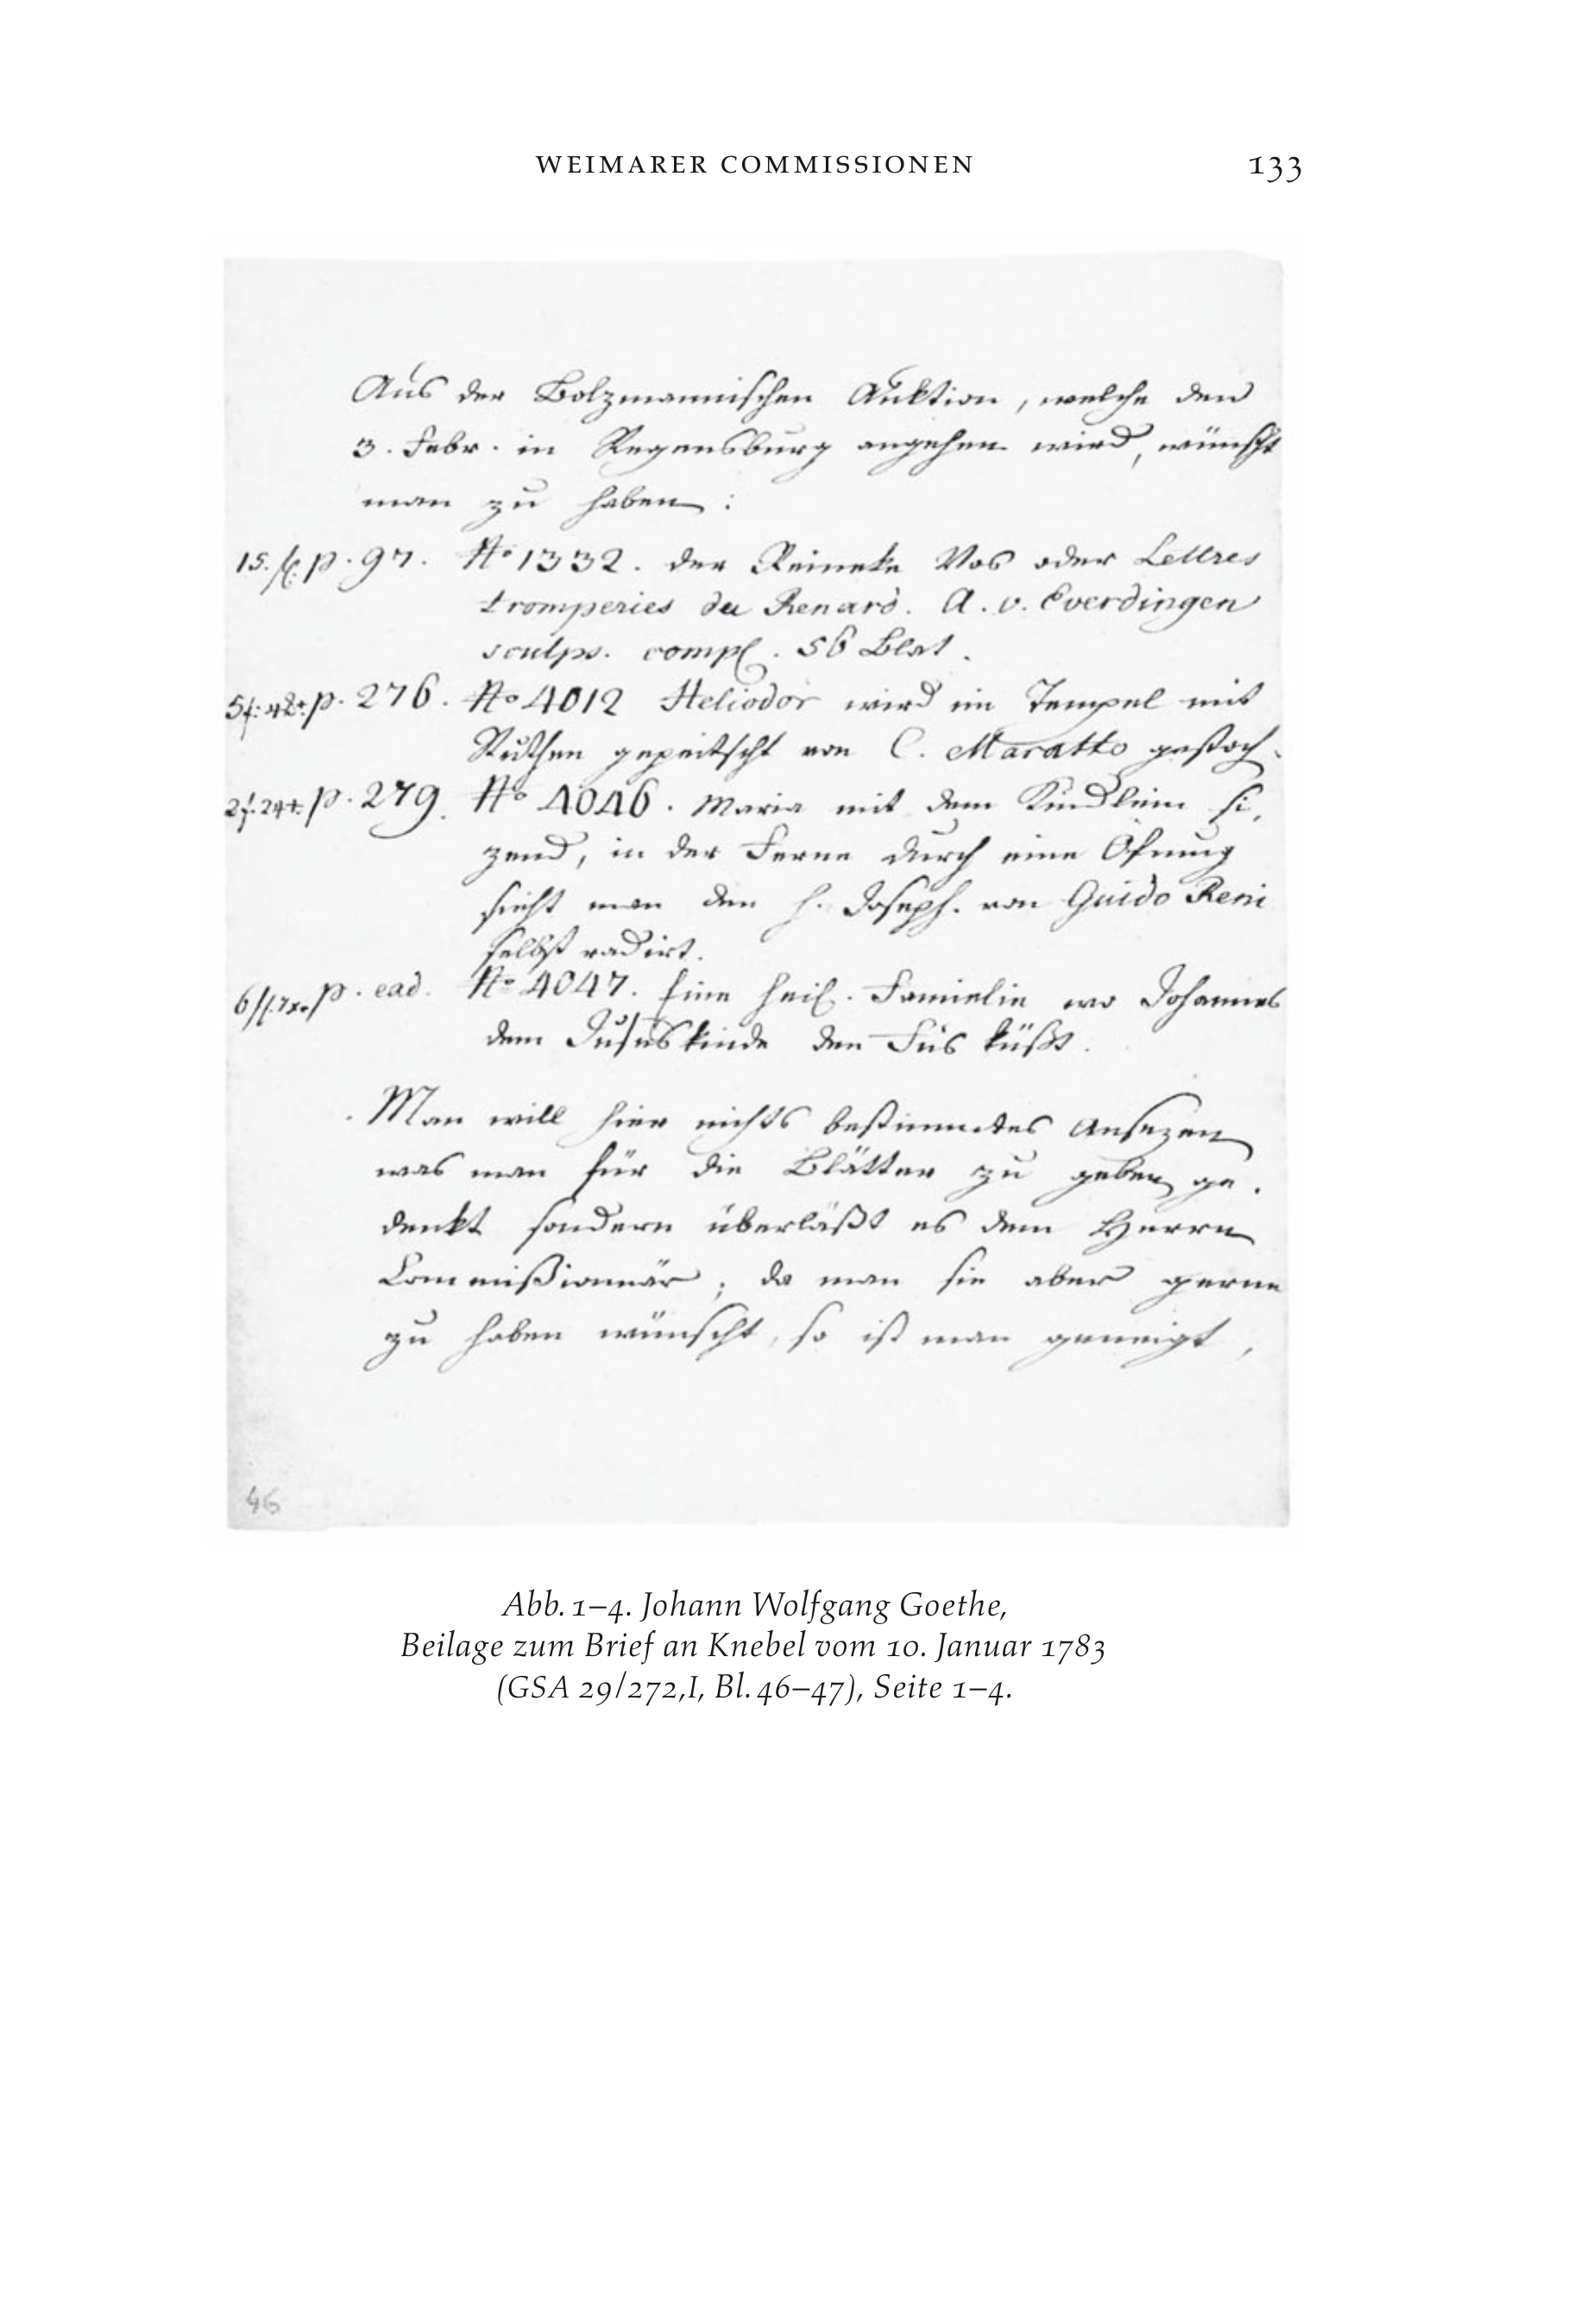 WEIMARER COMMISSIONEN 133
Aus der Bolzmannischen Auktion, welche den
3. Febr. in Regensburg angehen wird, wünscht
man zu haben:
15. p. 97. No 1332. der Reineke Vos oder Lettres
tromperies du Renard. A. v. Everdingen
sculps. compl. 56 Blat.
p. 276. No 4012 Heliodor wird im Tempel mit
Ruthen gepeitscht von C. Maratto gestoch.
p. 279. No 4046. Maria mit dem Kindlein si,
zend, in der Ferne durch eine Öfnung
sieht man den h. Joseph. von Guido Reni
selbst radirt.
p. ead. No 4047. Eine heil. Famielie wo Johannes
dem Jesuskinde den Fus küßt.
Man will hier nichts bestimmtes ansezen
was man für die Blätter zu geben ge.
denkt sondern überläßt es dem Herrn
Commißionär; da man sie aber gerne
zu haben wünscht, so ist man geneigt,
46
Abb. 1–4. Johann Wolfgang Goethe,
Beilage zum Brief an Knebel vom 10. Januar 1783
(GSA 29/272,I, Bl. 46–47), Seite 1–4.